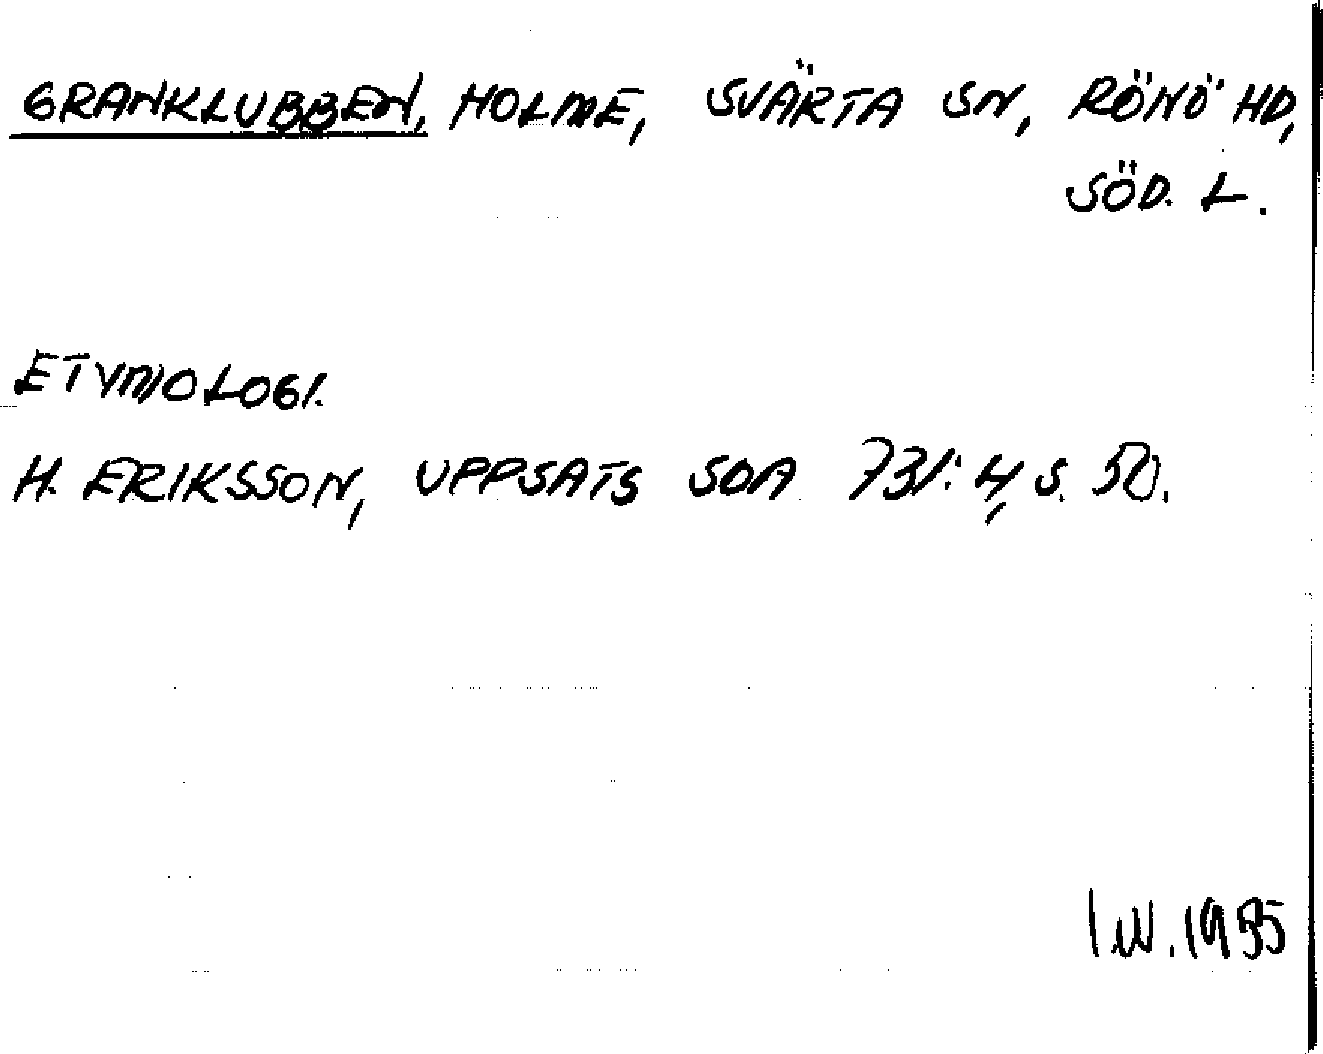 GRANKLUBBEN, HOLME, SVÄRTA SN, RÖNÖ HD,
SÖD. L.
ETYMOLOGI.
H. ERIKSSON, UPPSATS SOA 731:4, S. 50.
IW. 1985